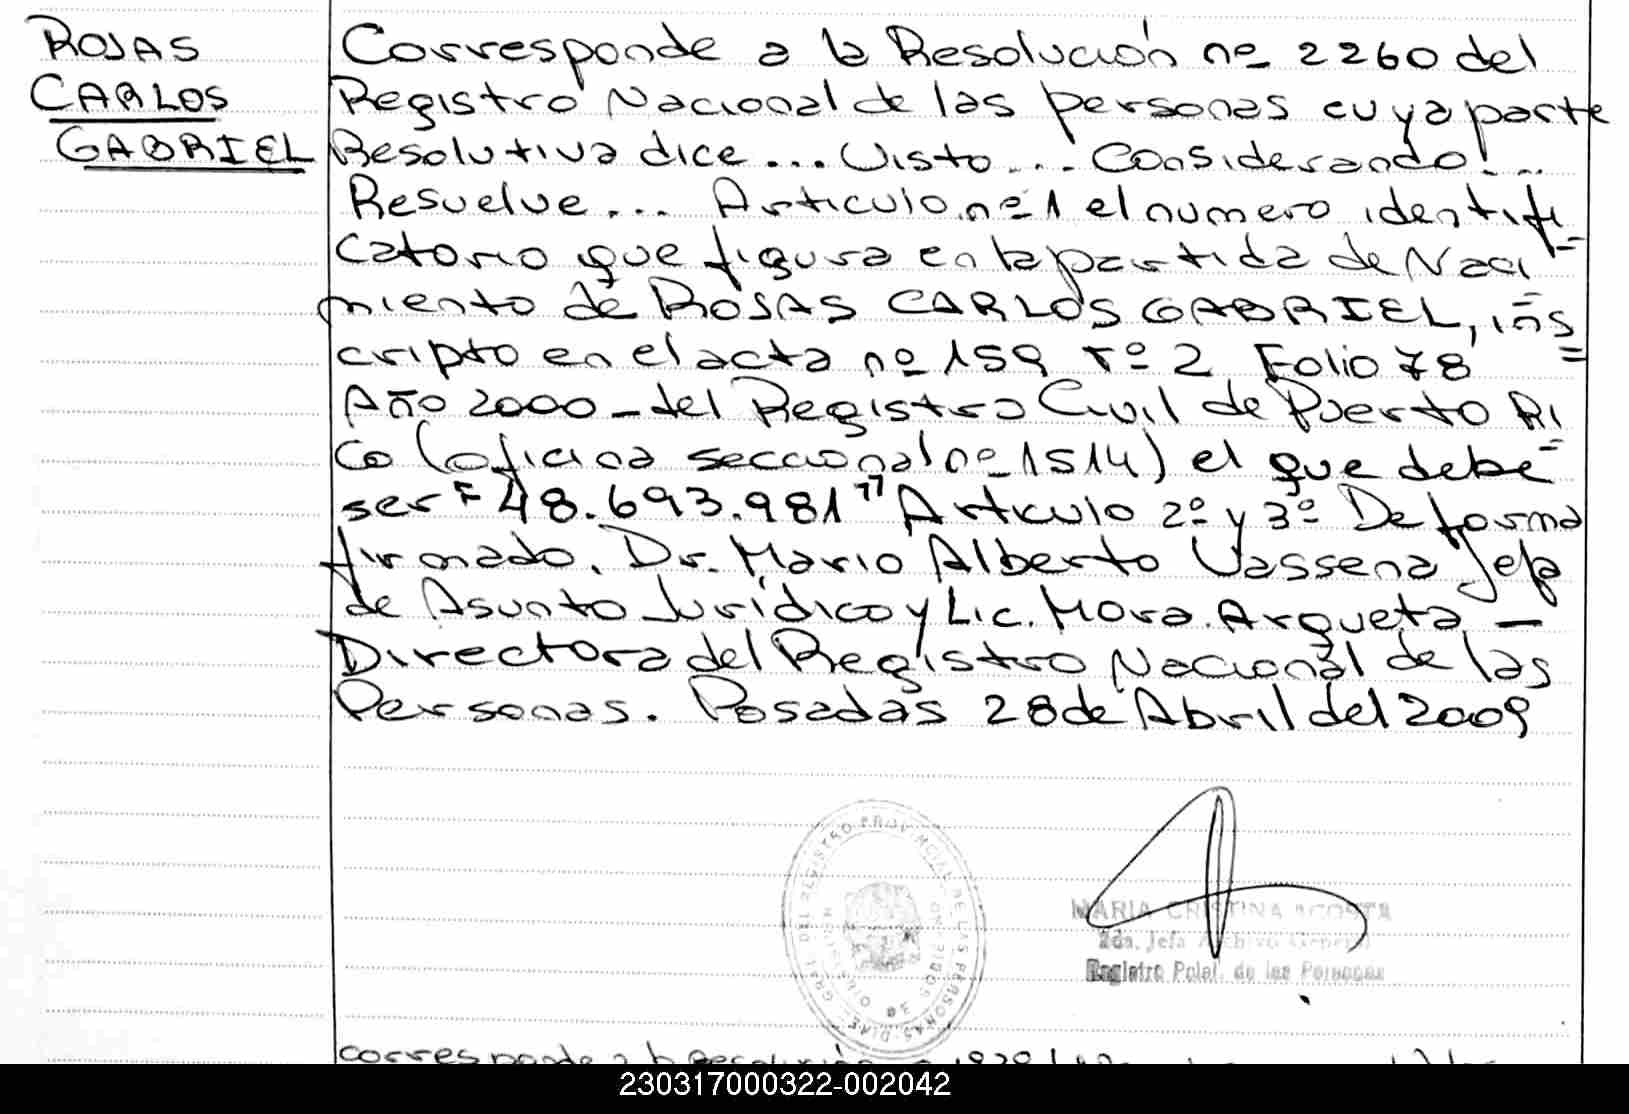 ROJAS
CARLOS
GABRIEL
Corresponde a la Resolución nº 2260 del
Registro Nacional de las personas cuya parte
Resolutiva dice... Visto... Considerando...
Resuelve... Articulo nº 1 el numero identifi=
catorio que figura en la partida de Naci=
miento de ROJAS CARLOS GABRIEL, ins=
cripto en el acta nº 159 Tº 2 Folio 78
Año 2000 - del Registro Civil de Puerto Ri=
co (oficina seccional nº 1514) el que debe
ser "48.693.981" Articulo 2º y 3º De forma
firmado. Dr. Mario Alberto Vassena Jefe
de Asunto Jurídico y Lic. Mora Arqueta -
Directora del Registro Nacional de las
Personas. Posadas 28 de Abril del 2009
REGISTRO PROVINCIAL DE LAS PERSONAS
MARIA CRISTINA ACOSTA
2da. Jefa Archivo General
Registro Pcial. de las Personas
corresponde a la Resolución
230317000322-002042